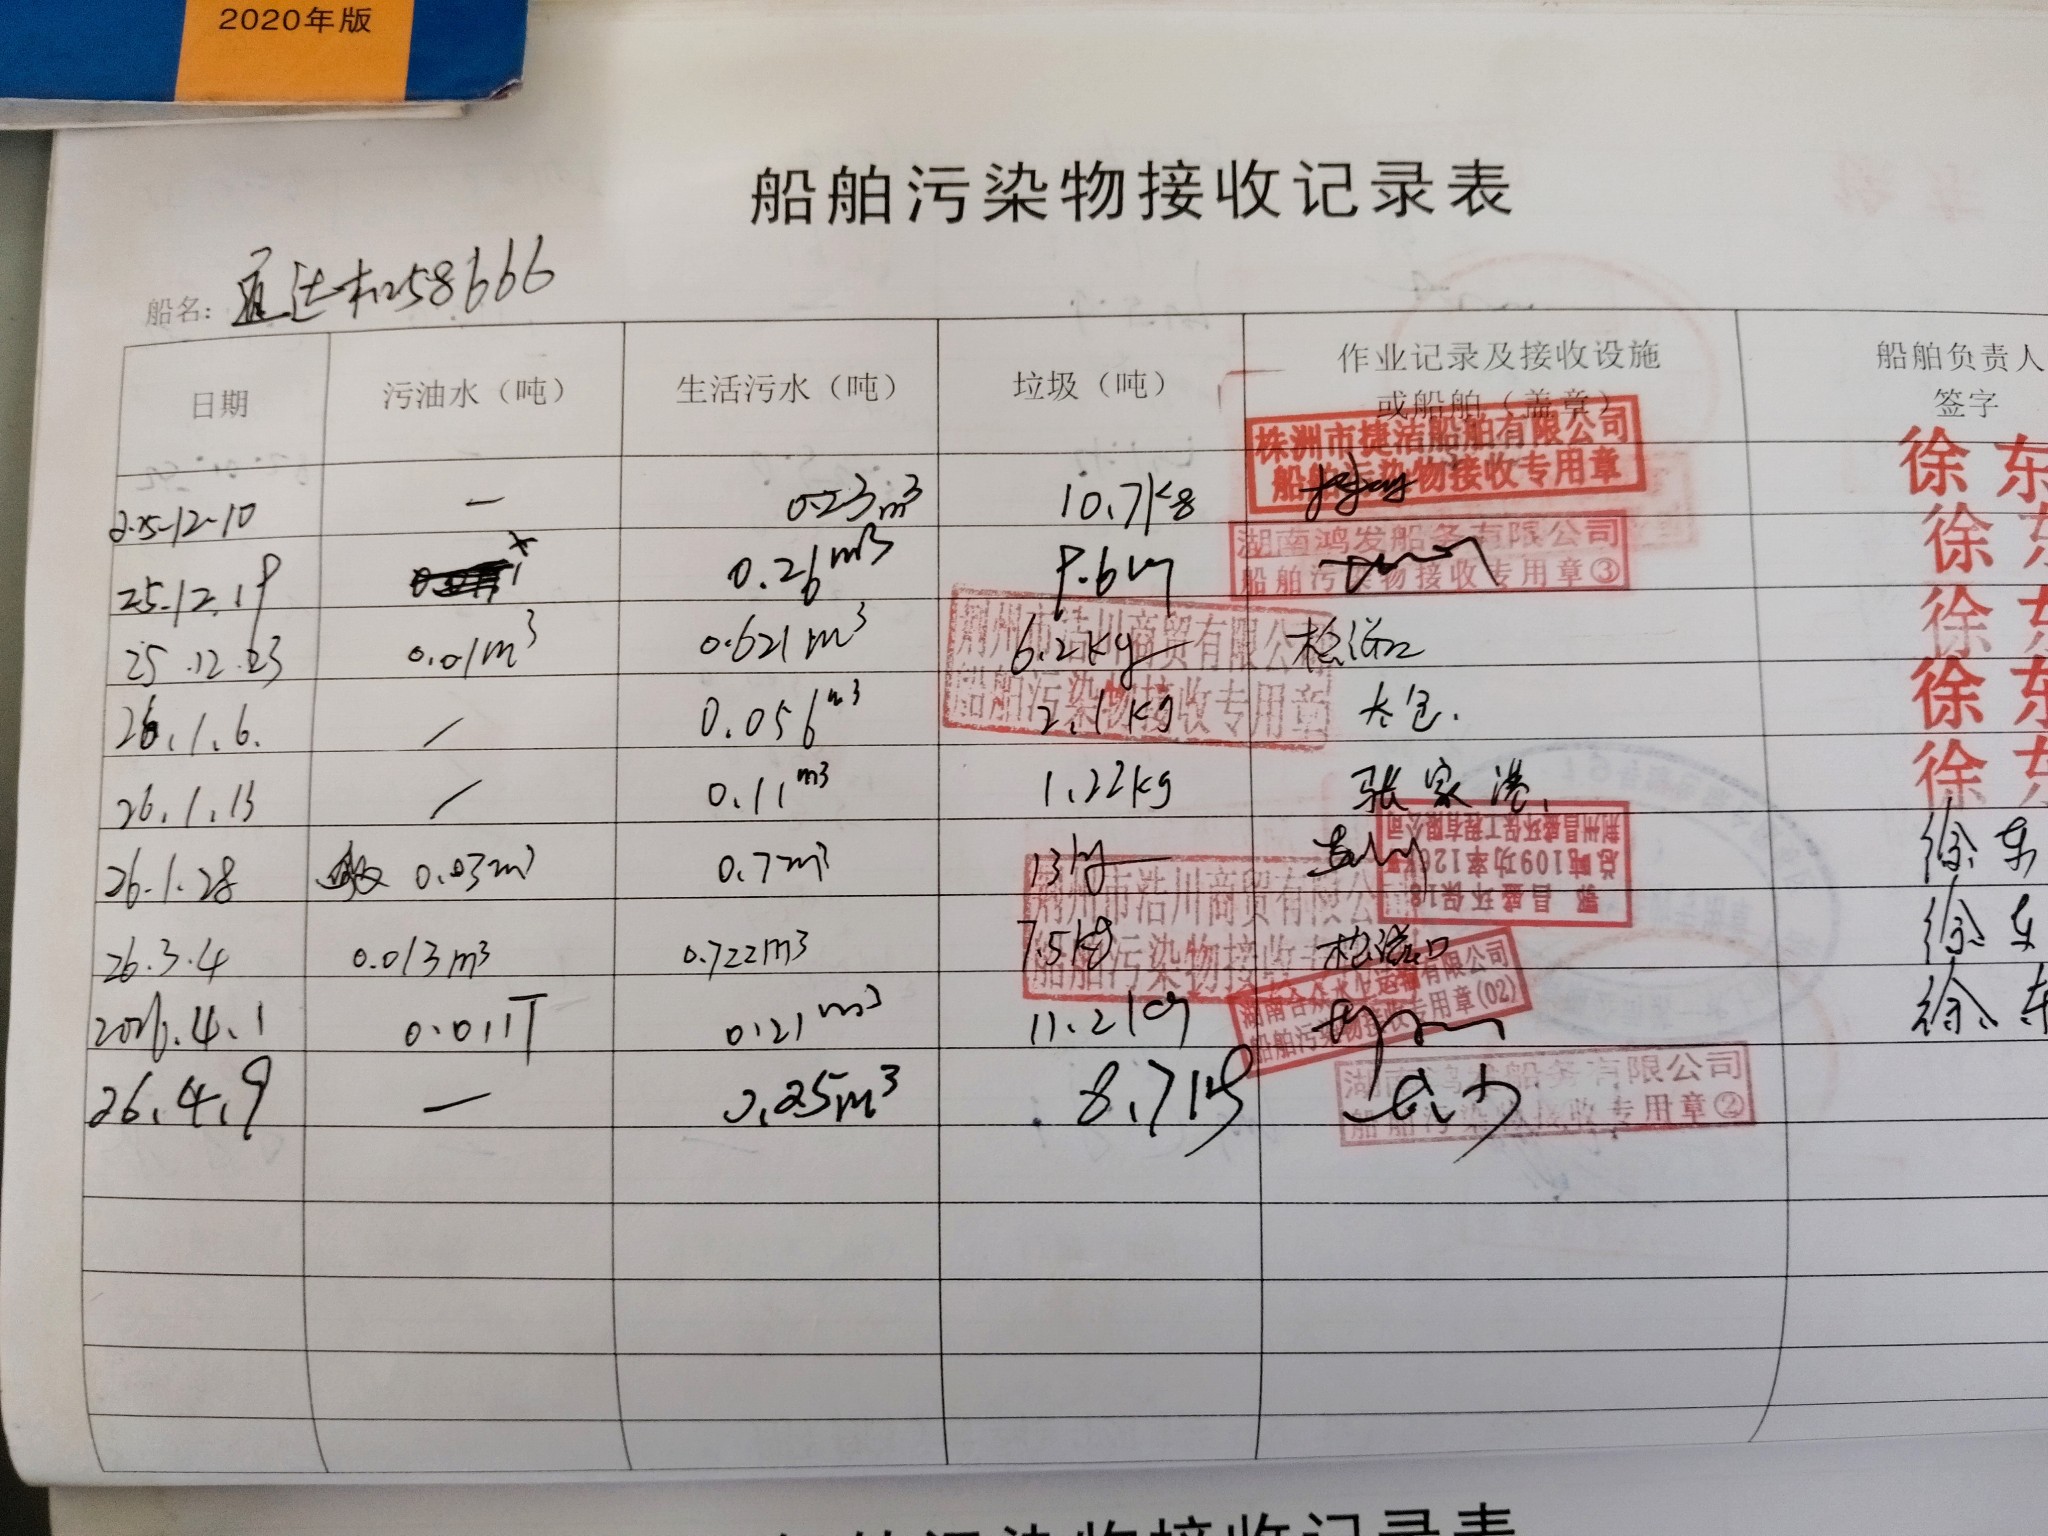 2020年版
船舶污染物接收记录表
船名: 通达机258666
日期 污油水（吨） 生活污水（吨） 垃圾（吨） 作业记录及接收设施或船舶（盖章） 船舶负责人签字
株洲市捷洁船舶有限公司
船舶污染物接收专用章
25-12-10 — 0.23m³ 10.7kg 徐东
湖南鸿发船务有限公司
船舶污染物接收专用章③
25.12.19 0.26m³ 9.6kg 徐东
荆州市浩川商贸有限公司
船舶污染物接收专用章
25.12.23 0.01m³ 0.621m³ 6.2kg 徐东
26.1.6. / 0.056m³ 2.1kg 太仓. 徐东
26.1.13 / 0.11m³ 1.22kg 张家港. 徐东
荆州昌盛环保工程有限公司
总吨109功率126
鄂昌盛环保18
26.1.28 0.03m³ 0.7m³ 13kg 徐东
荆州市浩川商贸有限公司
船舶污染物接收专用章
26.3.4 0.013m³ 0.722m³ 7.5kg 徐东
湖南合众水上运输有限公司
船舶污染物接收专用章(02)
2026.4.1 0.01T 0.21m³ 11.2kg 徐东
湖南鸿发船务有限公司
船舶污染物接收专用章②
26.4.9 — 0.25m³ 8.7kg
船舶污染物接收记录表